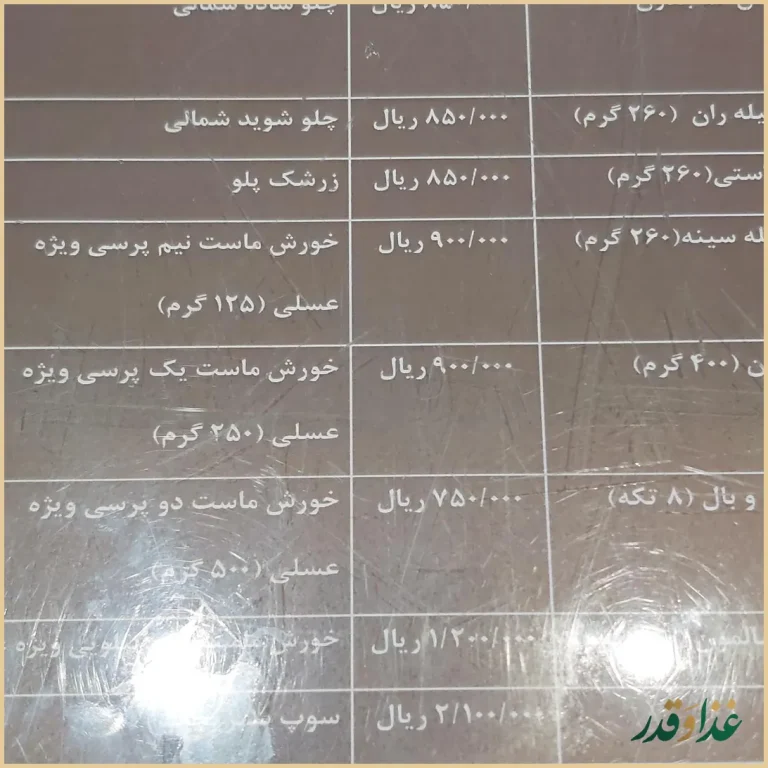 ۸۵۰/۰۰۰ ریال چلو ساده شمالی
یله ران (۲۶۰ گرم) ۸۵۰/۰۰۰ ریال چلو شوید شمالی
ستی(۲۶۰ گرم) ۸۵۰/۰۰۰ ریال زرشک پلو
له سینه(۲۶۰ گرم) ۹۰۰/۰۰۰ ریال خورش ماست نیم پرسی ویژه
عسلی (۱۲۵ گرم)
ن (۴۰۰ گرم) ۹۰۰/۰۰۰ ریال خورش ماست یک پرسی ویژه
عسلی (۲۵۰ گرم)
و بال (۸ تکه) ۷۵۰/۰۰۰ ریال خورش ماست دو پرسی ویژه
عسلی (۵۰۰ گرم)
المون ۱/۲۰۰/۰۰۰ ریال خورش ویژه
۲/۱۰۰/۰۰۰ ریال سوپ
غذا و قدر